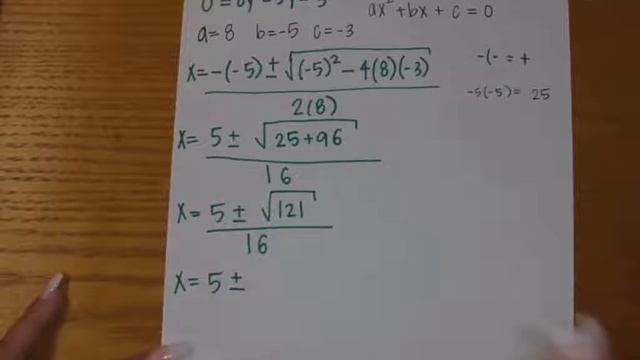 ax² + bx + c = 0
a = 8 b = -5 c = -3
x = -(-5) ± √(-5)² - 4(8)(-3)
2(8)
-(- = +
-5(-5) = 25
x = 5 ± √25+96
16
x = 5 ± √121
16
x = 5 ±